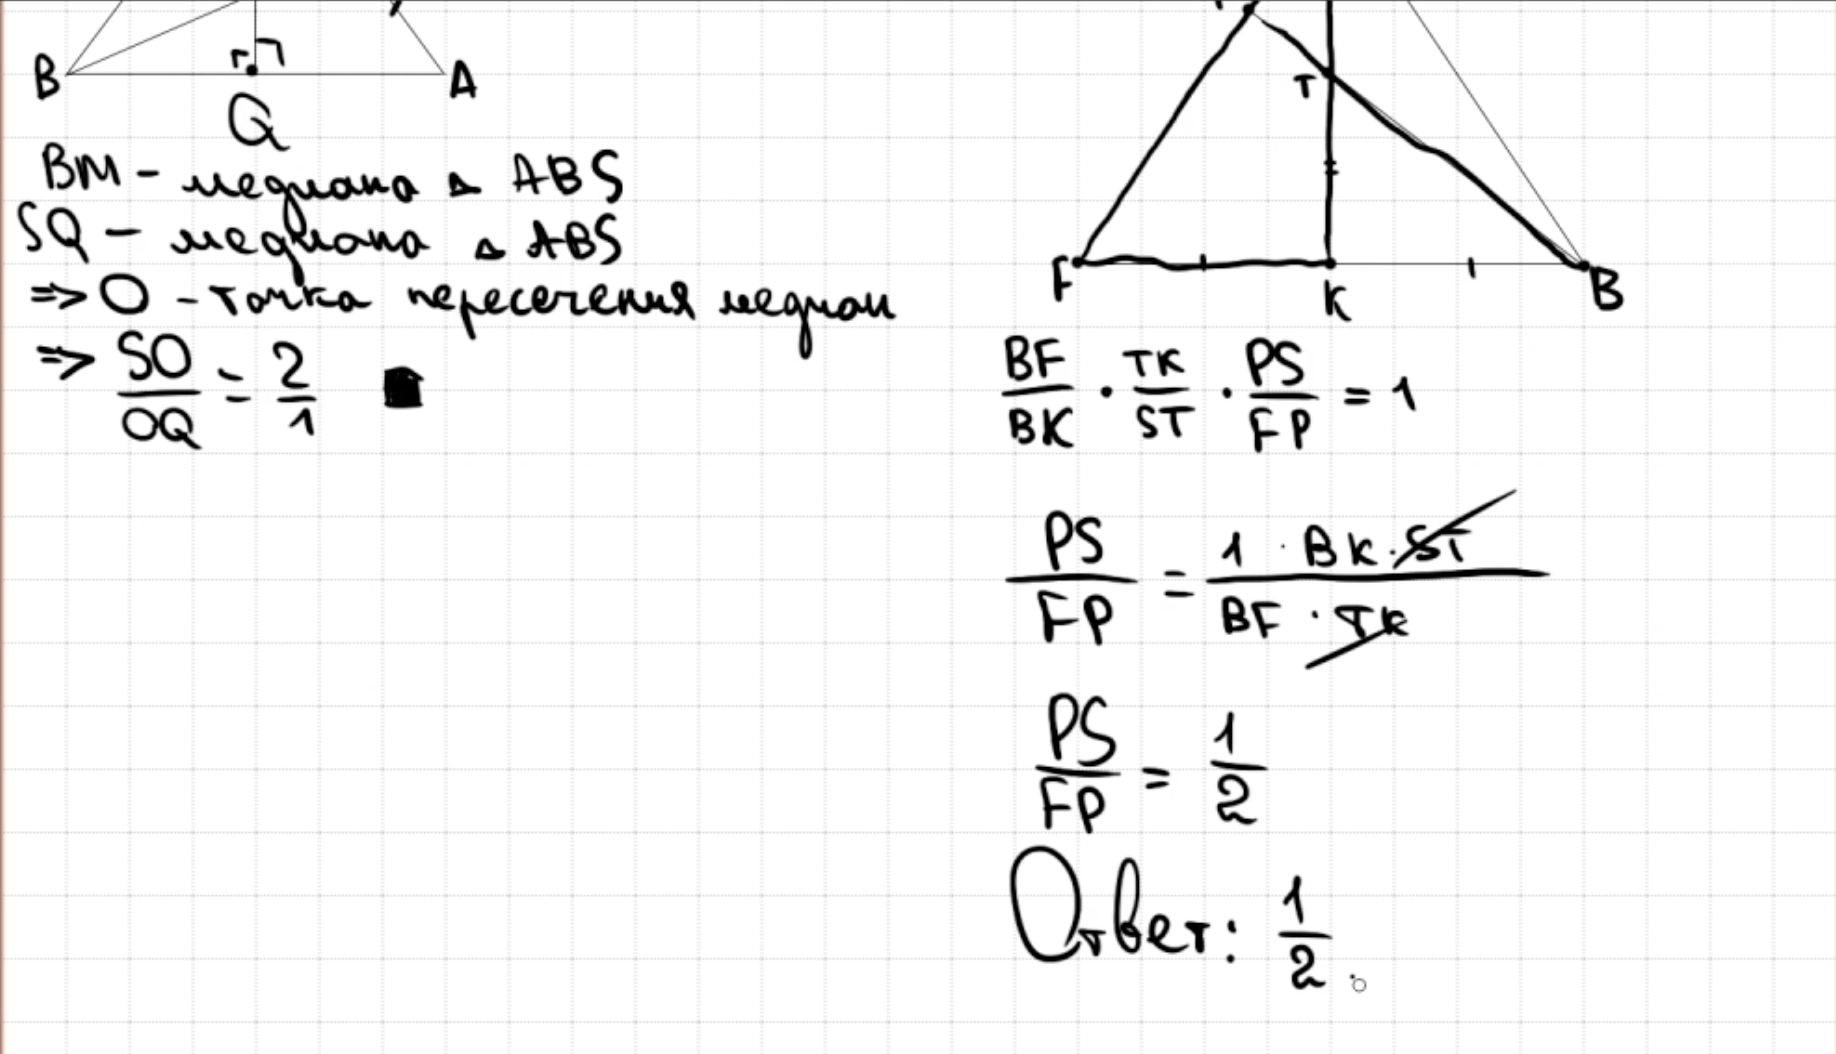 B
Q
A
BM - медиана Δ ABS
SQ - медиана Δ ABS
=> O - точка пересечения медиан
=> SO/OQ = 2/1 ■
T
F
K
B
BF/BK · TK/ST · PS/FP = 1
PS/FP = 1 · BK · ST / BF · TK
PS/FP = 1/2
Ответ: 1/2.